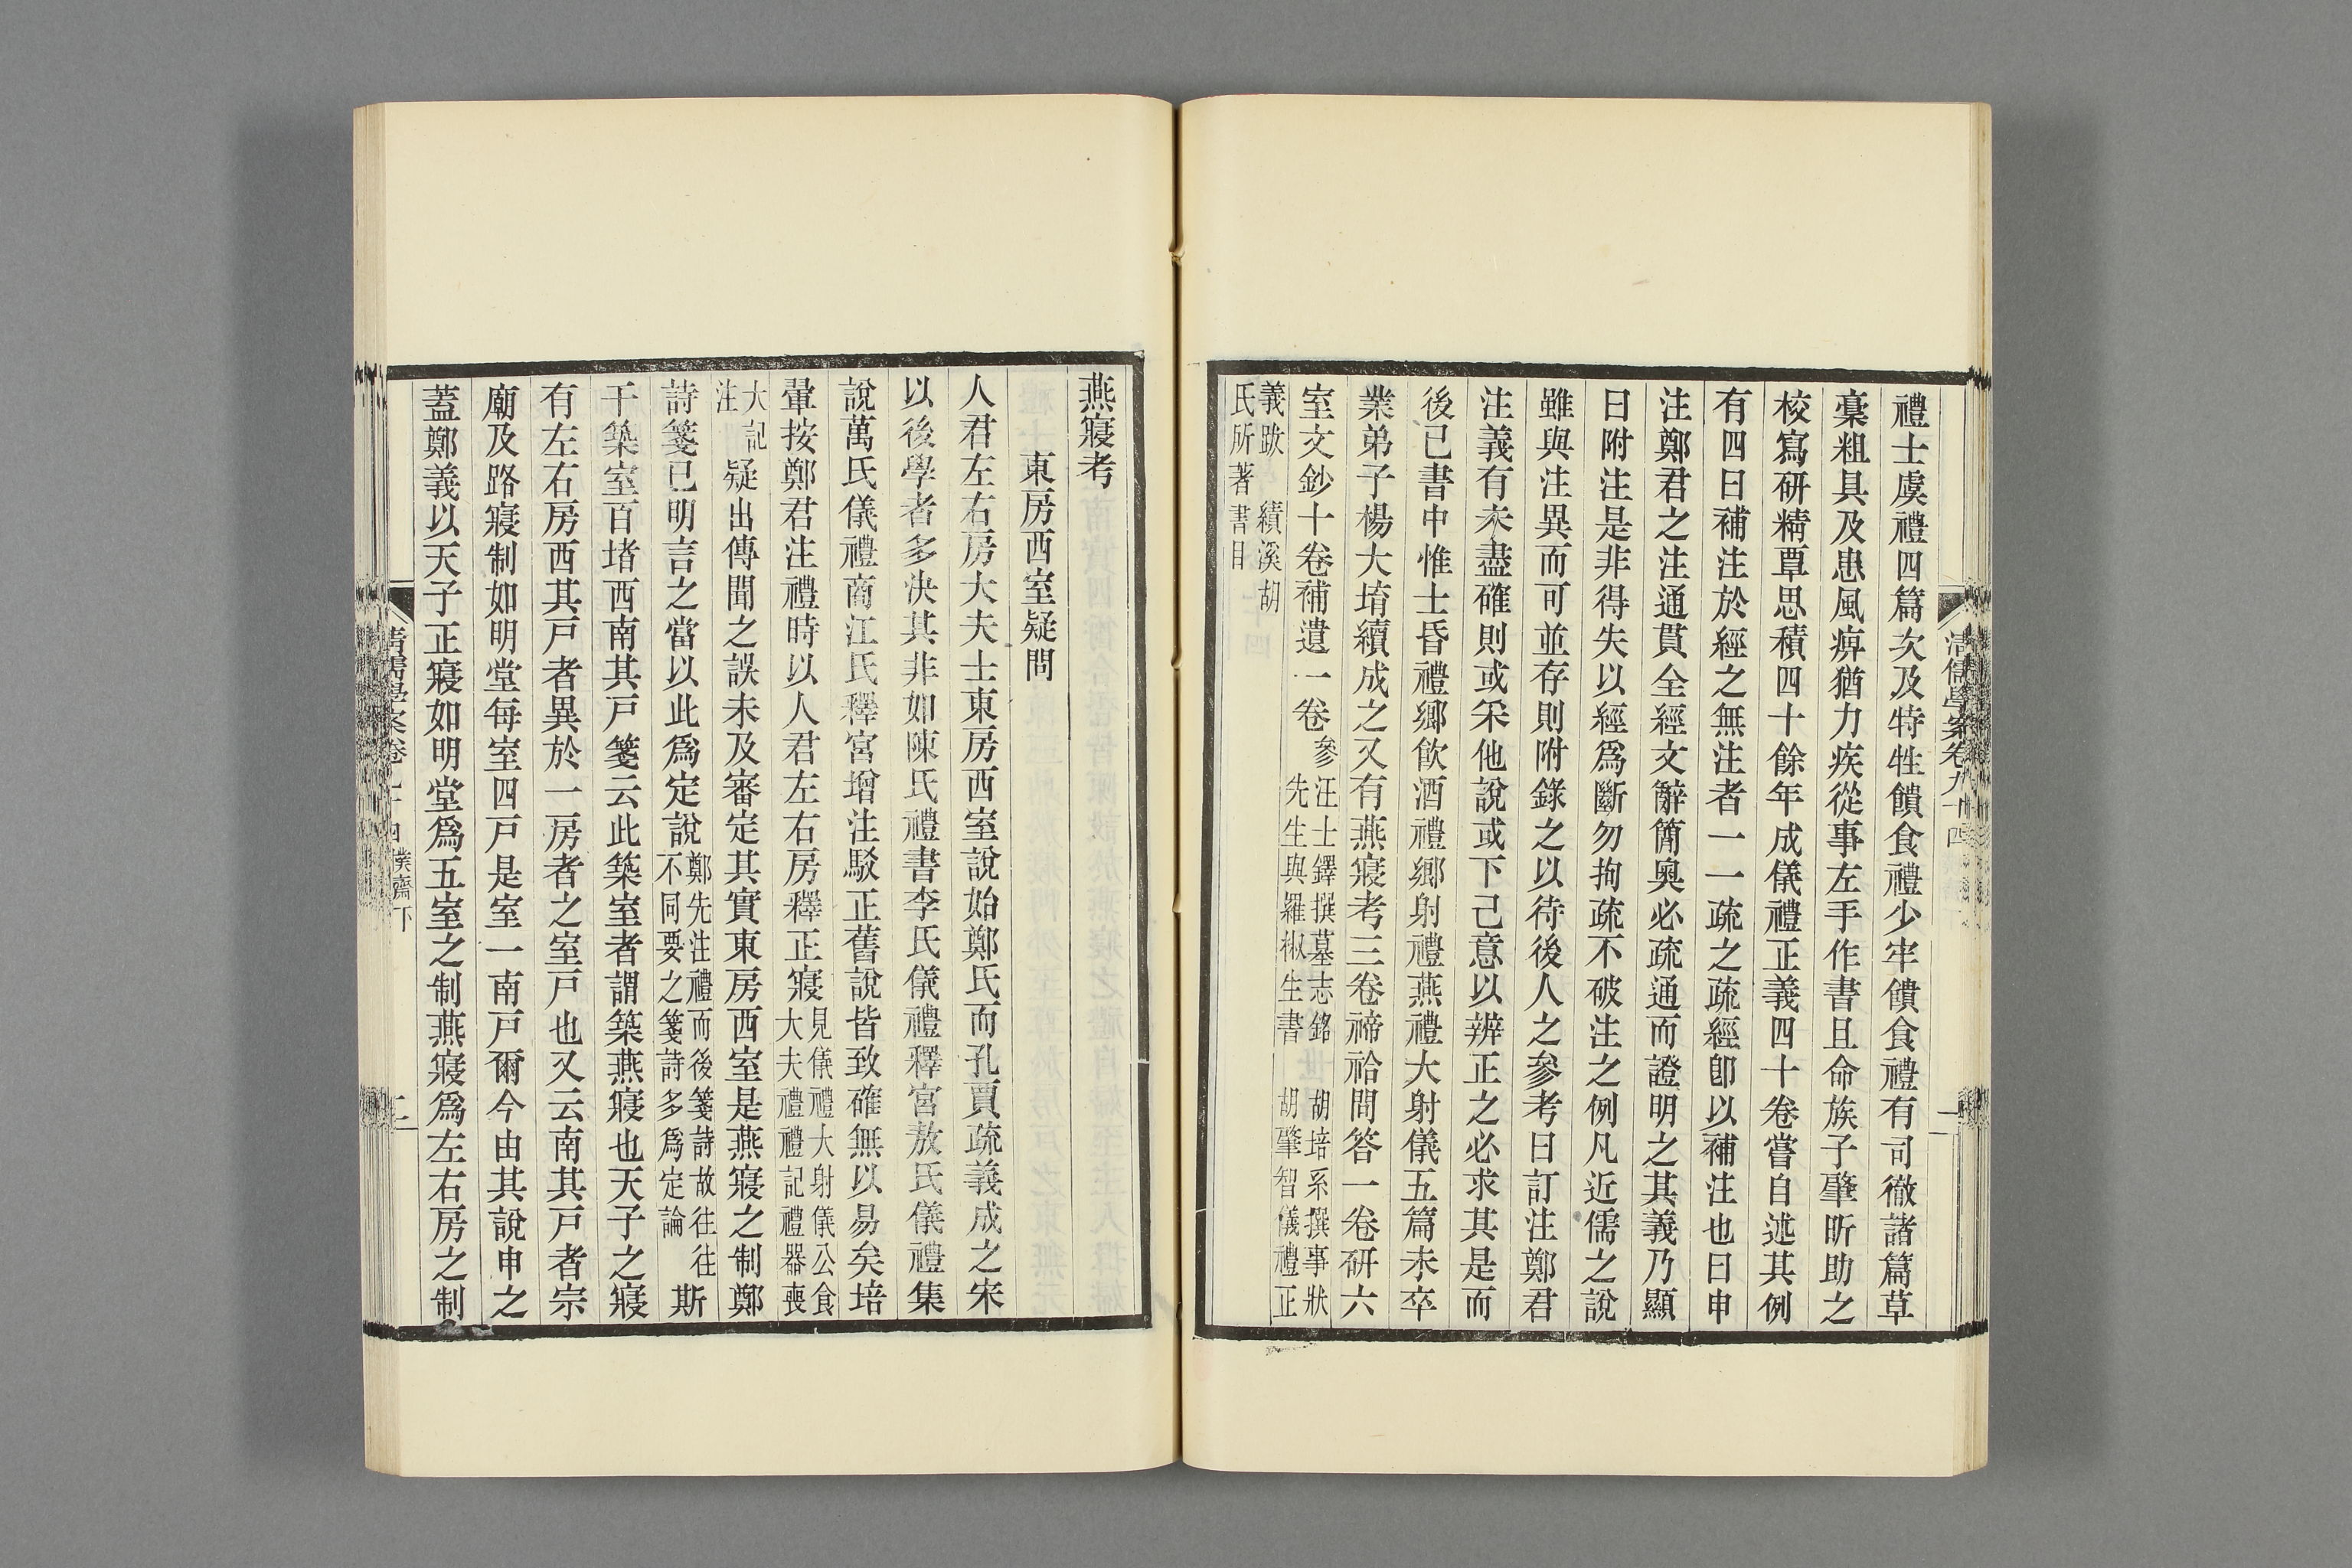 清儒學案卷九十四
一
禮士虞禮四篇次及特牲饋食禮少牢饋食禮有司徹諸篇草
稾粗具及患風痹猶力疾從事左手作書且命族子肇昕助之
校寫研精覃思積四十餘年成儀禮正義四十卷嘗自述其例
有四曰補注於經之無注者一一疏之疏經卽以補注也曰申
注鄭君之注通貫全經文辭簡奧必疏通而證明之其義乃顯
曰附注是非得失以經爲斷勿拘疏不破注之例凡近儒之說
雖與注異而可並存則附錄之以待後人之參考曰訂注鄭君
注義有未盡確則或采他說或下己意以辨正之必求其是而
後已書中惟士昏禮鄉飲酒禮鄉射禮燕禮大射儀五篇未卒
業弟子楊大堉續成之又有燕寢考三卷禘祫問答一卷研六
室文鈔十卷補遺一卷參
汪士鐸撰墓志銘　胡培系撰事狀
先生與羅椒生書　胡肇智儀禮正
義跋　績溪胡
氏所著書目
燕寢考
東房西室疑問
人君左右房大夫士東房西室說始鄭氏而孔賈疏義成之宋
以後學者多決其非如陳氏禮書李氏儀禮釋宮敖氏儀禮集
說萬氏儀禮商江氏釋宮增注駁正舊說皆致確無以易矣培
翬按鄭君注禮時以人君左右房釋正寢
見儀禮大射儀公食
大夫禮禮記禮器喪
大記
注
疑出傳聞之誤未及審定其實東房西室是燕寢之制鄭
詩箋已明言之當以此爲定說
鄭先注禮而後箋詩故往往
不同要之箋詩多爲定論
斯
干築室百堵西南其戸箋云此築室者謂築燕寢也天子之寢
有左右房西其戸者異於一房者之室戸也又云南其戸者宗
廟及路寢制如明堂每室四戸是室一南戸爾今由其說申之
蓋鄭義以天子正寢如明堂爲五室之制燕寢爲左右房之制
清儒學案卷九十四　樸齋下
二